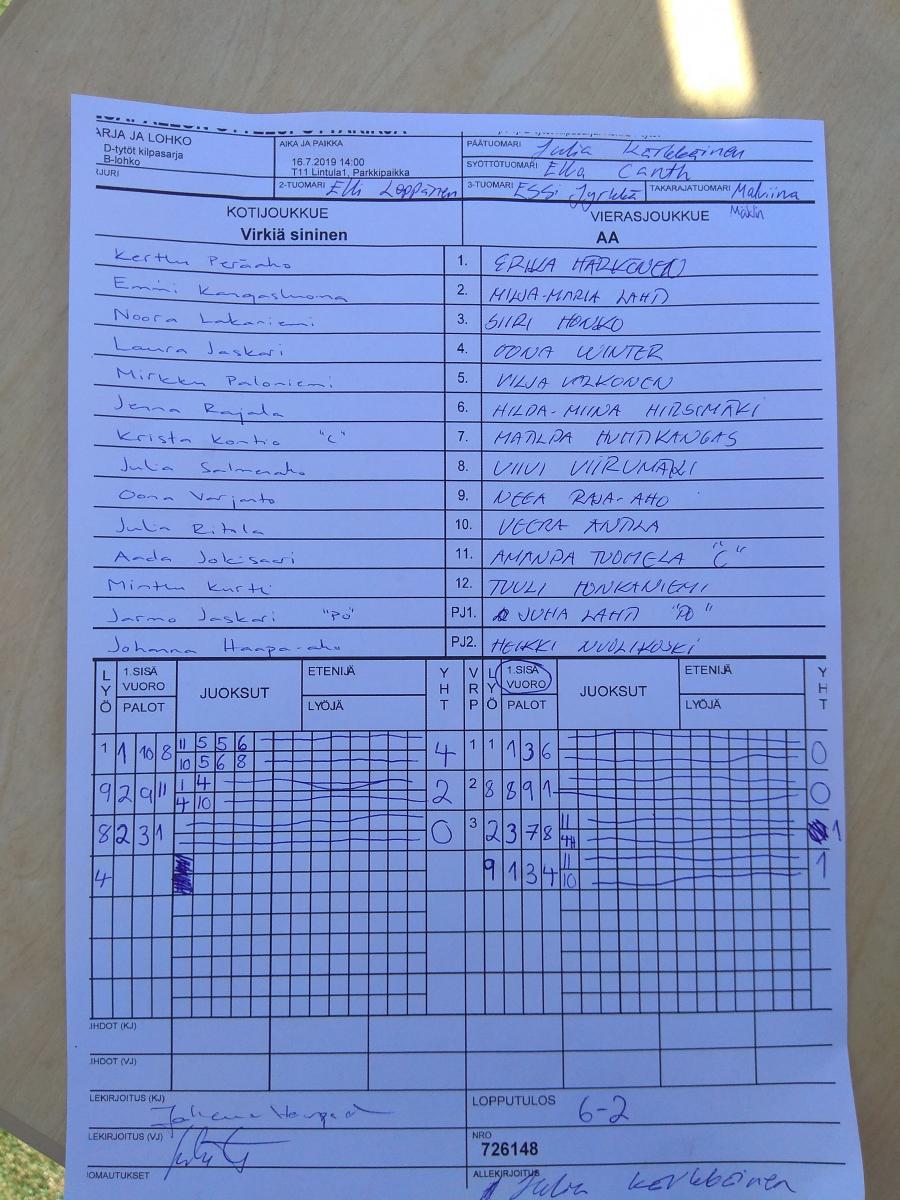 ARJA JA LOHKO
D-tytöt kilpasarja
B-lohko
RJURI
AIKA JA PAIKKA
16.7.2019 14:00
T11 Lintula1, Parkkipaikka
PÄÄTUOMARI Julia Karkkainen
SYÖTTÖTUOMARI Ella Canth
2-TUOMARI Elli Loppänen 3-TUOMARI ESSi Jyrkkä TAKARAJATUOMARI Malviina
Mäklin
KOTIJOUKKUE VIERASJOUKKUE
Virkiä sininen AA
Kerttu Peräaho 1. ERIKA HARKONEN
Emmi Kangasluoma 2. MILJA-MARIA LAHTI
Noora Lakaniemi 3. SIIRI HONKO
Laura Jaskari 4. OONA WINTER
Mirkku Paloniemi 5. VILJA VALKONEN
Jenna Rajala 6. HILDA-MIINA HIRSIMÄKI
Krista Kontio "C" 7. MATILDA HUHTIKANGAS
Julia Salmenaho 8. VIIVI VIIRUMÄKI
Oona Varjanto 9. NEEA RAJA-AHO
Julia Ritala 10. VEERA ANTILA
Aada Jokisaari 11. AMANDA TUOMELA "C"
Minttu Kurtti 12. TUULI HONKANIEMI
Jarmo Jaskari "PO" PJ1. JUHA LAHTI "PO"
Johanna Haapa-aho PJ2. HEIKKI NUOLIKOSKI
LYÖ 1.SISÄ VUORO PALOT JUOKSUT ETENIJÄ LYÖJÄ YHT VRP LYÖ 1.SISÄ VUORO PALOT JUOKSUT ETENIJÄ LYÖJÄ YHT
1 1 10 8 11 5 5 6 4 1 1 1 3 6 0
10 5 6 8
9 2 9 11 1 4 2 2 8 8 9 1 0
4 10
8 2 3 1 0 3 2 3 7 8 11 1
4
4 9 1 3 4 11 1
10
IHDOT (KJ)
IHDOT (VJ)
LEKIRJOITUS (KJ)
LOPPUTULOS 6-2
LEKIRJOITUS (VJ)
NRO
726148
IOMAUTUKSET
ALLEKIRJOITUS Julia Karkkainen